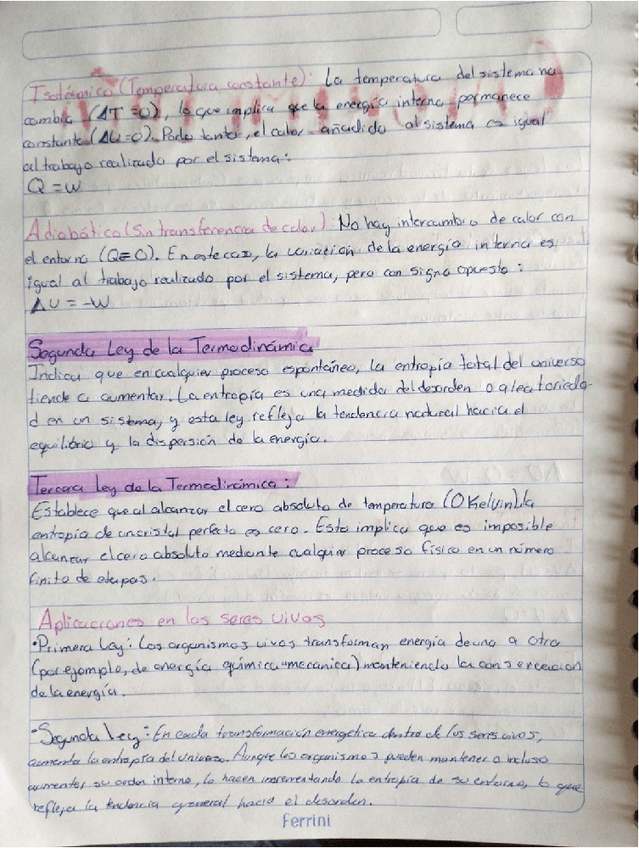 Isotérmico (Temperatura constante): La temperatura del sistema no
cambia (ΔT=0), lo que implica que la energía interna permanece
constante (ΔU=0). Por lo tanto, el calor añadido al sistema es igual
al trabajo realizado por el sistema:
Q = W
Adiabático (Sin transferencia de calor): No hay intercambio de calor con
el entorno (Q=0). En este caso, la variación de la energía interna es
igual al trabajo realizado por el sistema, pero con signo opuesto:
ΔU = -W
Segunda Ley de la Termodinámica
Indica que en cualquier proceso espontáneo, la entropía total del universo
tiende a aumentar. La entropía es una medida del desorden o aleatorieda-
d en un sistema, y esta ley refleja la tendencia natural hacia el
equilibrio y la dispersión de la energía.
Tercera Ley de la Termodinámica:
Establece que al alcanzar el cero absoluto de temperatura (0 Kelvin), la
entropía de un cristal perfecto es cero. Esto implica que es imposible
alcanzar el cero absoluto mediante cualquier proceso físico en un número
finito de etapas.
Aplicaciones en los seres vivos
•Primera Ley: Los organismos vivos transforman energía de una a otra
(por ejemplo, de energía química a mecanica) manteniendo la conservacion
de la energía.
•Segunda Ley: En cada transformación energética dentro de los seres vivos,
aumenta la entropía del universo. Aunque los organismos pueden mantener o incluso
aumentar su orden interno, lo hacen incrementando la entropía de su entorno, lo que
refleja la tendencia general hacia el desorden.
Ferrini